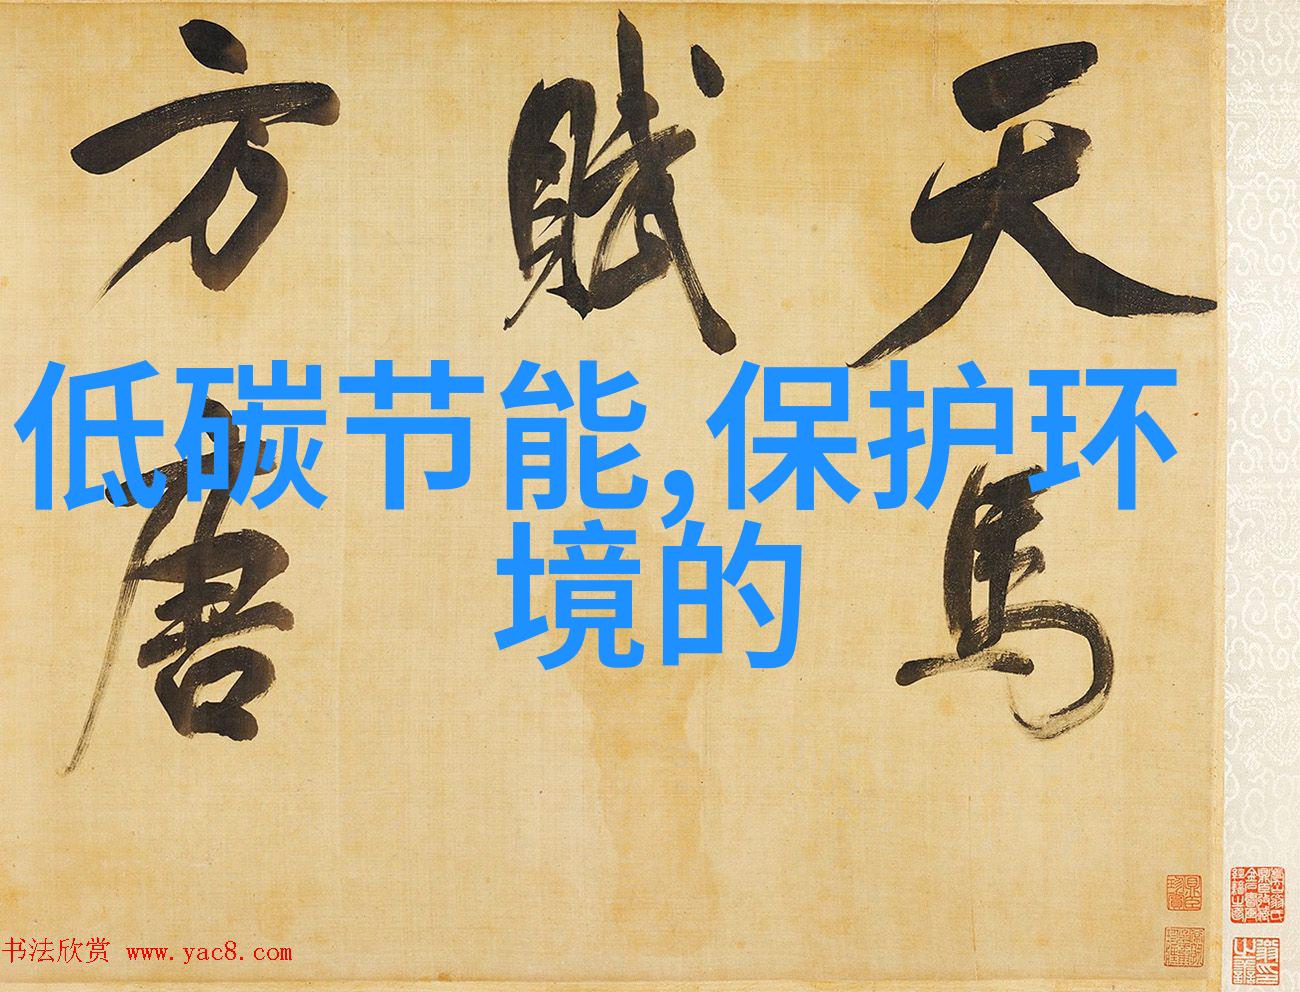 天馬
賦
方唐
低碳节能,保护环
境的
书法欣赏 www.yac8.com